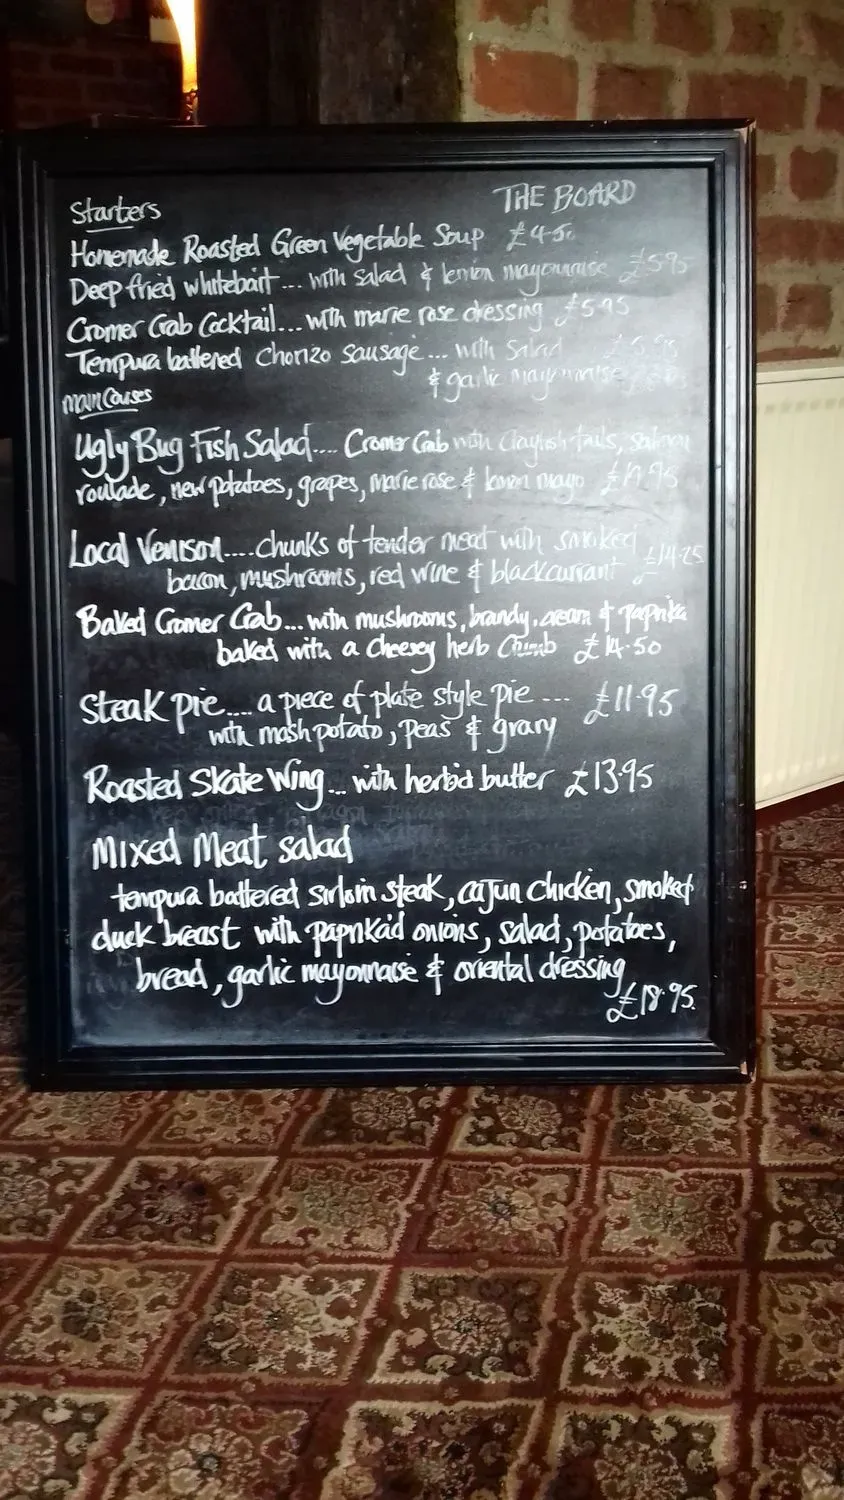 THE BOARD
Starters
Homemade Roasted Green Vegetable Soup £4.50
Deep fried whitebait... with salad & lemon mayonnaise £5.95
Cromer Crab Cocktail... with marie rose dressing £5.95
Tempura battered Chorizo Sausage... with Salad
& garlic mayonnaise
main Couses
Ugly Bug Fish Salad.... Cromer Crab with Crayfish tails, salmon
roulade, new potatoes, grapes, marie rose & lemon mayo
Local Venison.....chunks of tender meat with smoked
bacon, mushrooms, red wine & blackcurrant
Baked Cromer Crab... with mushrooms, brandy, cream & paprika
baked with a cheesey herb Crumb £14.50
Steak pie.... a piece of plate style pie... £11.95
with mash potato, peas & gravy
Roasted Skate Wing... with herbid butter £13.95
Mixed Meat salad
tempura battered sirloin steak, cajun chicken, smoked
duck breast with paprika'd onions, salad, potatoes,
bread, garlic mayonnaise & oriental dressing
£18.95